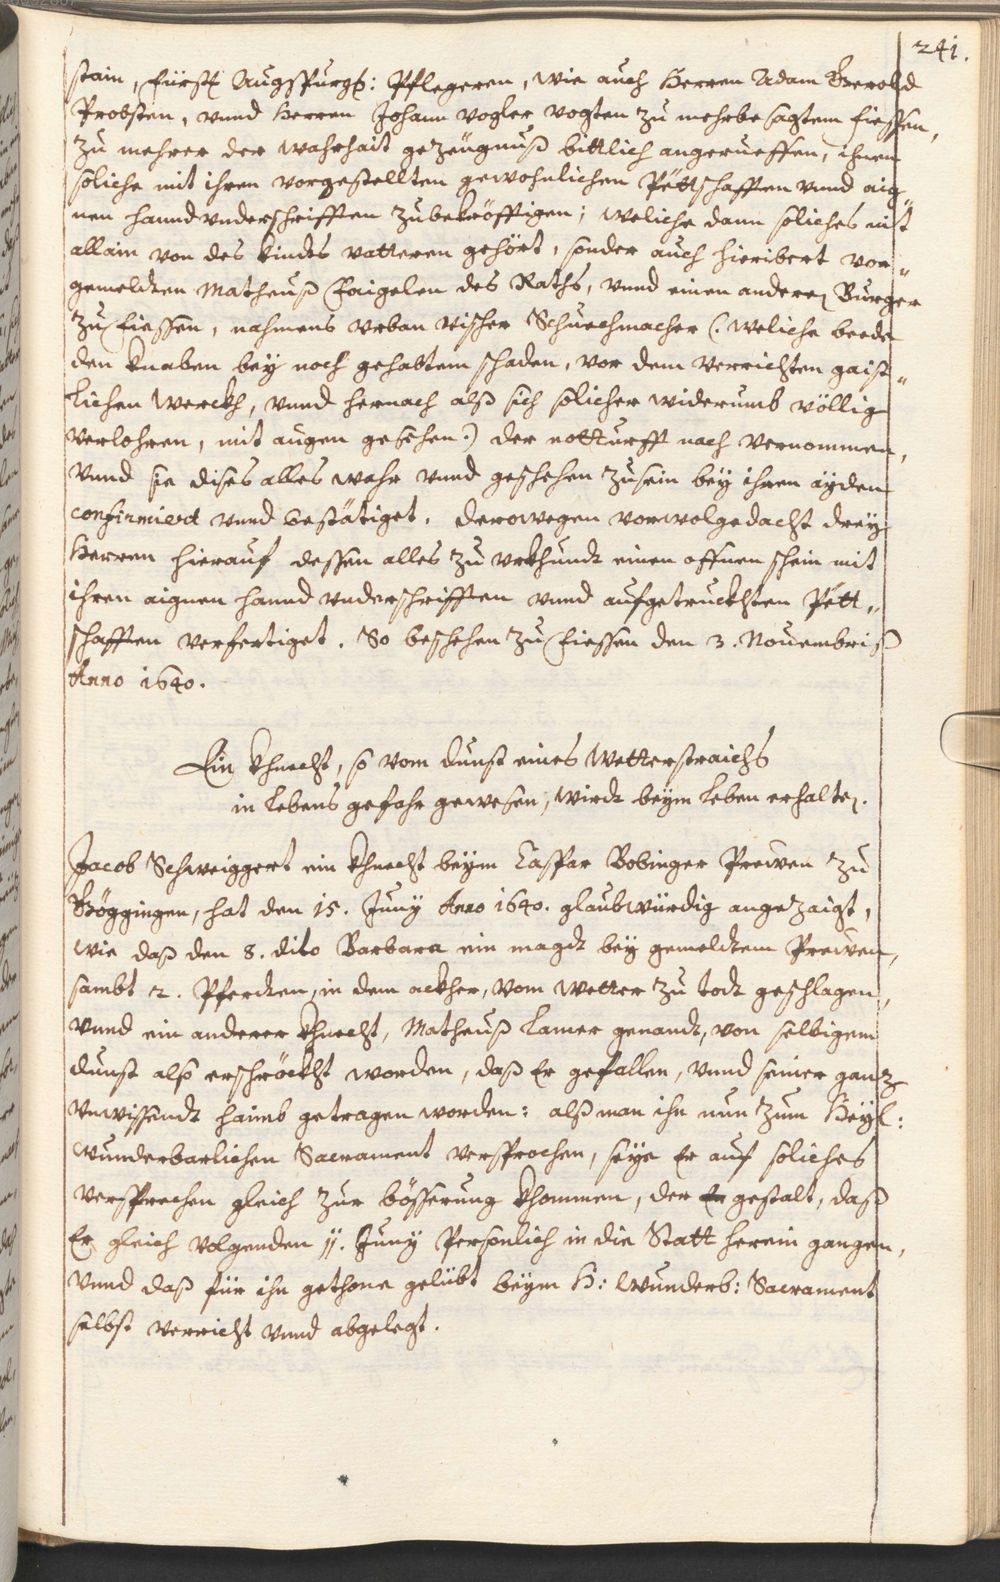 241.
stain, Fürstl Augspurg: Pflegeren, wie auch Herren Adam Berold
Probsten, vnnd Herren Johann Vogler Vogten zu mehrbesagtem Fiessen,
zu mehrer der wahrhait gezeügnuß bittlich angerueffen, ihnen
soliche mit ihren vorgestellten gewohnlichen Pettschafften vnnd aig„
nen hanndvnderschrifften zubekröfftigen; weliche dann soliches nit
allain von des kindts vatteren gehört, sonder auch hieribert vor„
gemeldten Matheuß Faigelen des Raths, vnnd einen anderen Burger
zu Fiessen, nahmens Vrban Vischer Schuechmacher (: weliche beede
den knaben bey noch gehabtem schaden, vor dem verrichten gaist„
lichen werckh, vnnd hernach alß sich solicher widerumb völlig
verlohren, mit augen gesehen:) der notturfft nach vernommen,
vnnd sie dises alles wahr vnnd geschehen zusein bey ihren ayden
confirmiert vnnd bestätiget. Derowegen vorwolgedacht drey
Herren hierauf dessen alles zu vrkhundt einen offnen schein mit
ihren aignen hannd vnderschrifften vnnd aufgetruckhten Pett„
schafften verfertiget. So beschehen zu Fiessen den 3. Nouembris
Anno 1640.
Ein khnecht, so vom dunst eines Wetterstraichs
in lebens gefahr gewesen, wirdt beym leben erhalten.
Jacob Schweiggert ein khnecht beym Caspar Bobinger Preüen zu
Göggingen, hat den 15. Juny Anno 1640. glaubwürdig angezaigt,
wie daß den 8. dito Barbara ein magdt bey gemeldtem Preüen,
sambt 2. Pferdten, in dem ackher, vom wetter zu todt geschlagen,
vnnd ein anderer khnecht, Matheuß Lamer genandt, von selbigem
dunst also erschröckht worden, daß Er gefallen, vnnd seiner gantz
vnwissendt haimb getragen worden: alß man ihn nun zum Heyl:
wunderbarlichen Sacrament versprochen, seye Er auf soliches
versprechen gleich zur bösserung khommen, der gestalt, daß
Er gleich volgenden 11. Juny Persönlich in die Statt herein gangen,
vnnd daß für ihn gethone gelübt beym H: Wunderb: Sacrament
selbst verricht vnnd abgelegt.